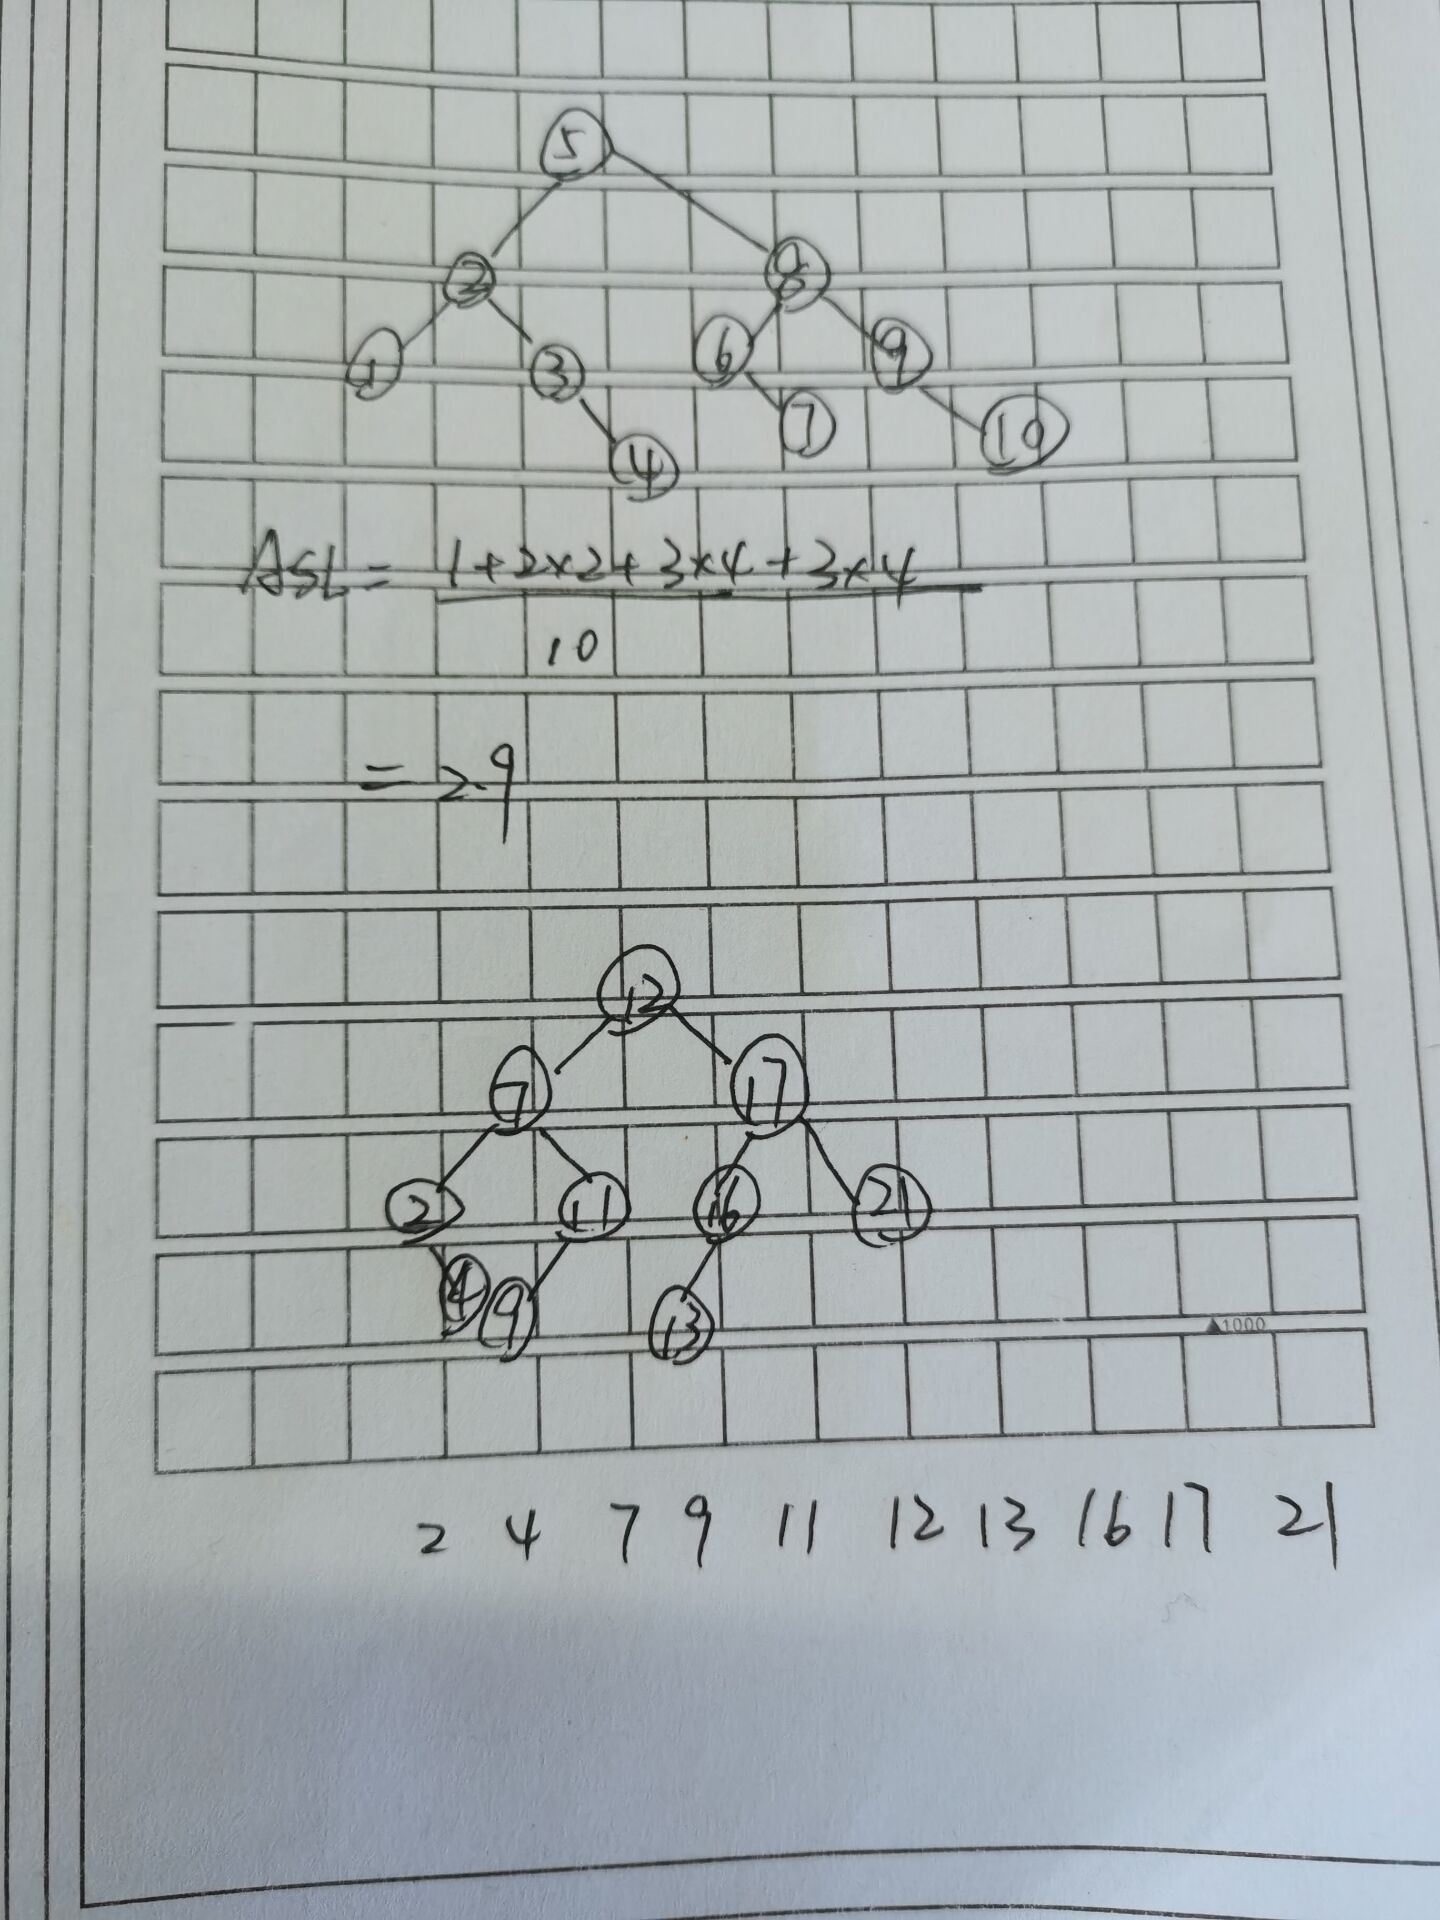 5
2 8
1 3 6 9
4 7 10
ASL = 1+2×2+3×4+3×4
10
= 2.9
12
7 17
2 11 16 21
4 9 13
▲1000
2 4 7 9 11 12 13 16 17 21